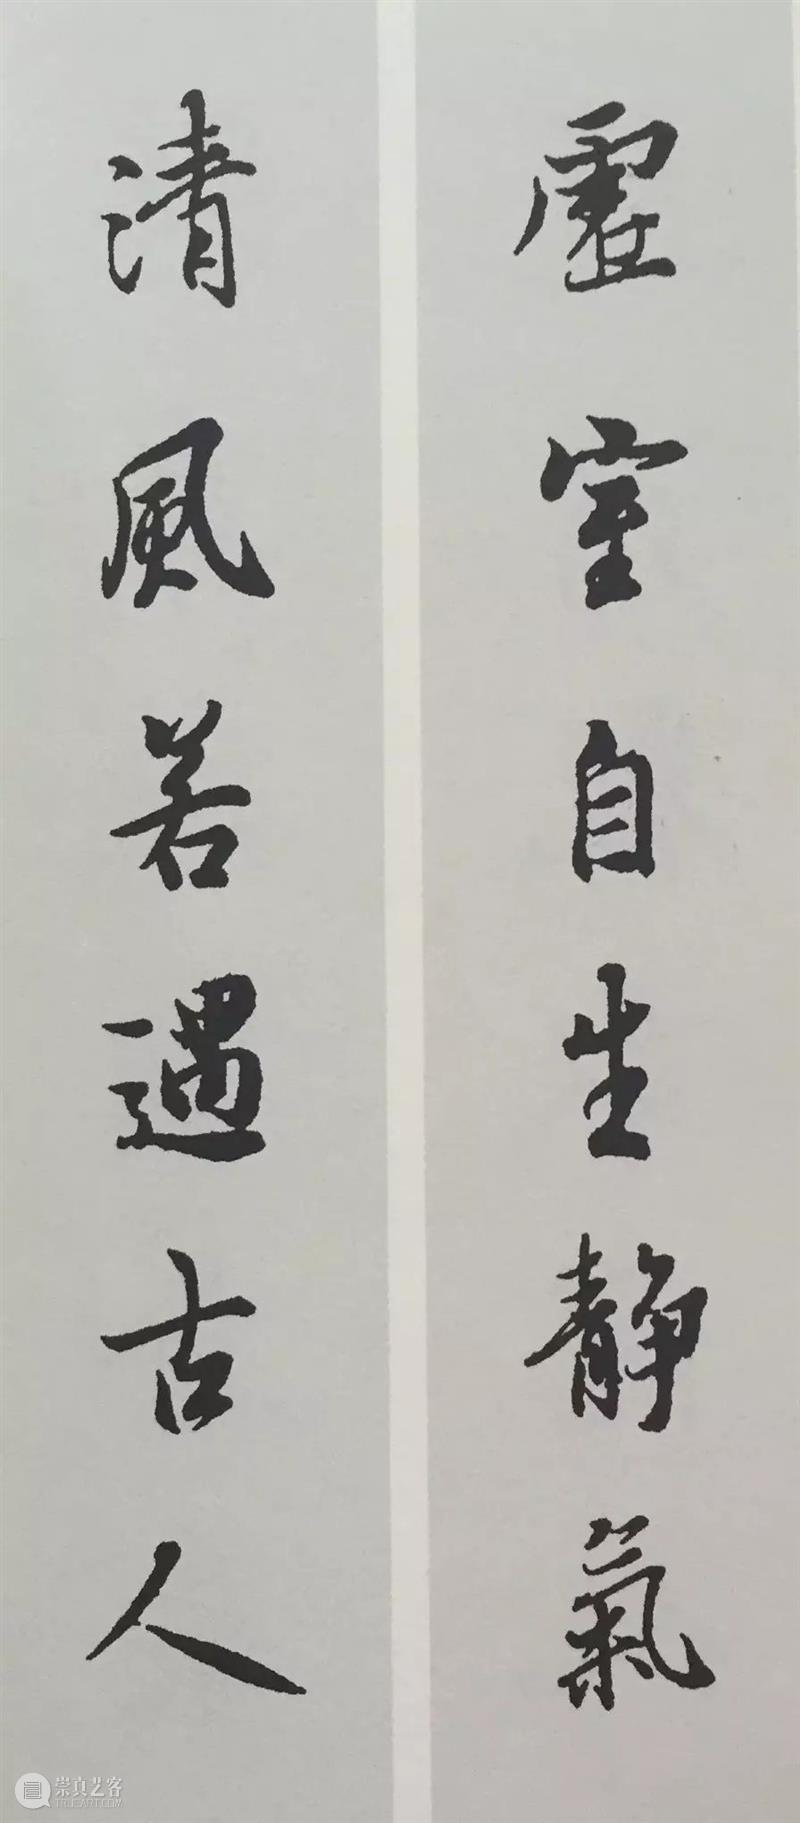 虛室自生靜氣
清風若遇古人
崇真艺客
TRUEART.COM